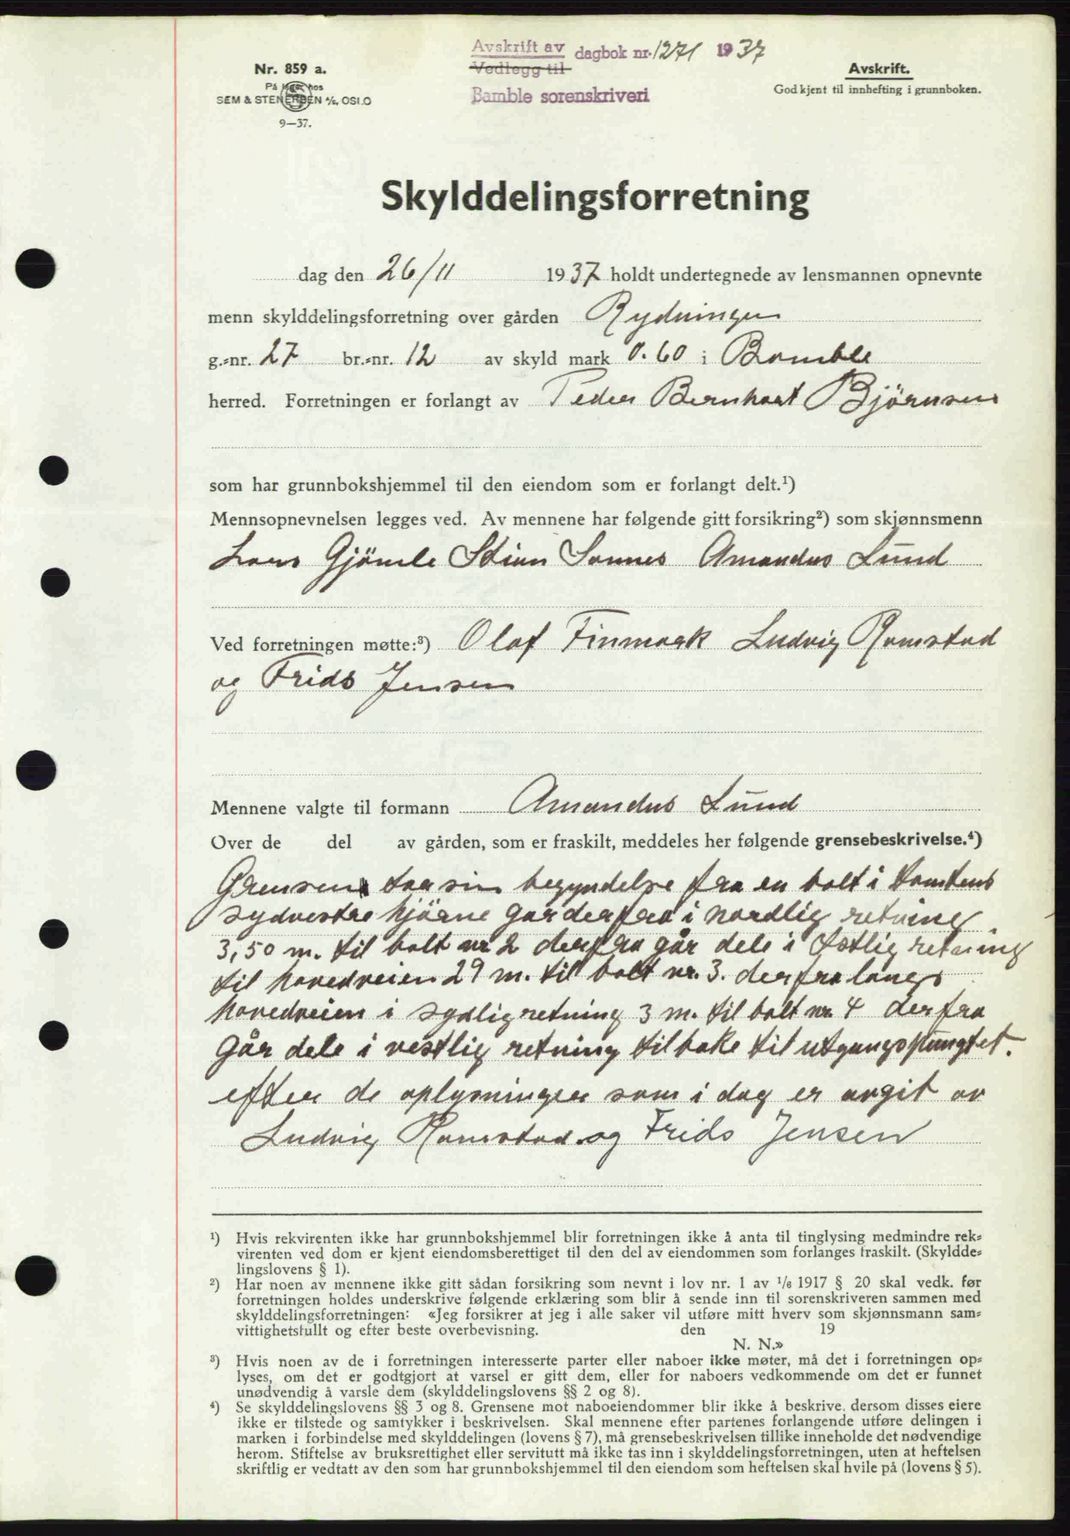 Avskrift av dagbok nr. 1271 1937
Vedlegg til
Bamble sorenskriveri
Nr. 859 a.
På lager hos
SEM & STENERSEN A/S, OSLO
9—37.
Avskrift.
Godkjent til innhefting i grunnboken.
Skylddelingsforretning
dag den 26/11 1937 holdt undertegnede av lensmannen opnevnte
menn skylddelingsforretning over gården Rydningen
g.-nr. 27 br.-nr. 12 av skyld mark 0.60 i Bamble
herred. Forretningen er forlangt av Peder Bernhart Björnsen
som har grunnbokshjemmel til den eiendom som er forlangt delt.¹)
Mennsopnevnelsen legges ved. Av mennene har følgende gitt forsikring²) som skjønnsmenn
Lars Gjömle Stian Sannes Amandus Lund
Ved forretningen møtte:³) Olaf Finmark Ludvig Ramstad
og Frids Jensen
Mennene valgte til formann Amandus Lund
Over de del av gården, som er fraskilt, meddeles her følgende grensebeskrivelse.⁴)
Grensen tar sin begyndelse fra en bolt i tomtens
sydvestre hjörne går derfra i nordlig retning
3,50 m. til bolt nr 2 derfra går dele i östlig retning
til hovedveien 29 m. til bolt nr. 3. derfra langs
hovedveien i sydlig retning 3 m. til bolt nr. 4 derfra
går dele i vestlig retning tilbake til utgangspungtet.
efter de oplysninger som i dag er avgit av
Ludvig Ramstad og Frids Jensen
¹) Hvis rekvirenten ikke har grunnbokshjemmel blir forretningen ikke å anta til tinglysing medmindre rek-
virenten ved dom er kjent eiendomsberettiget til den del av eiendommen som forlanges fraskilt. (Skyldde-
lingslovens § 1).
²) Har noen av mennene ikke gitt sådan forsikring som nevnt i lov nr. 1 av 1/6 1917 § 20 skal vedk. før
forretningen holdes underskrive følgende erklæring som blir å sende inn til sorenskriveren sammen med
skylddelingsforretningen: «Jeg forsikrer at jeg i alle saker vil utføre mitt hverv som skjønnsmann sam-
vittighetsfullt og efter beste overbevisning. den 19
N. N.»
³) Hvis noen av de i forretningen interesserte parter eller naboer ikke møter, må det i forretningen op-
lyses, om det er godtgjort at varsel er gitt dem, eller for naboers vedkommende om det er funnet
unødvendig å varsle dem (skylddelingslovens §§ 2 og 8).
⁴) Se skylddelingslovens §§ 3 og 8. Grensene mot naboeiendommer blir ikke å beskrive, dersom disses eiere
ikke er tilstede og samtykker i beskrivelsen. Skal mennene efter partenes forlangende utføre delingen i
marken i forbindelse med skylddelingen (lovens § 7), må grensebeskrivelsen tillike inneholde det nødvendige
herom. Stiftelse av bruksrettighet eller servitutt må ikke tas inn i skylddelingsforretningen, uten at heftelsen
skriftlig er vedtatt av den som har grunnbokshjemmel til den eiendom som heftelsen skal hvile på (lovens § 5).